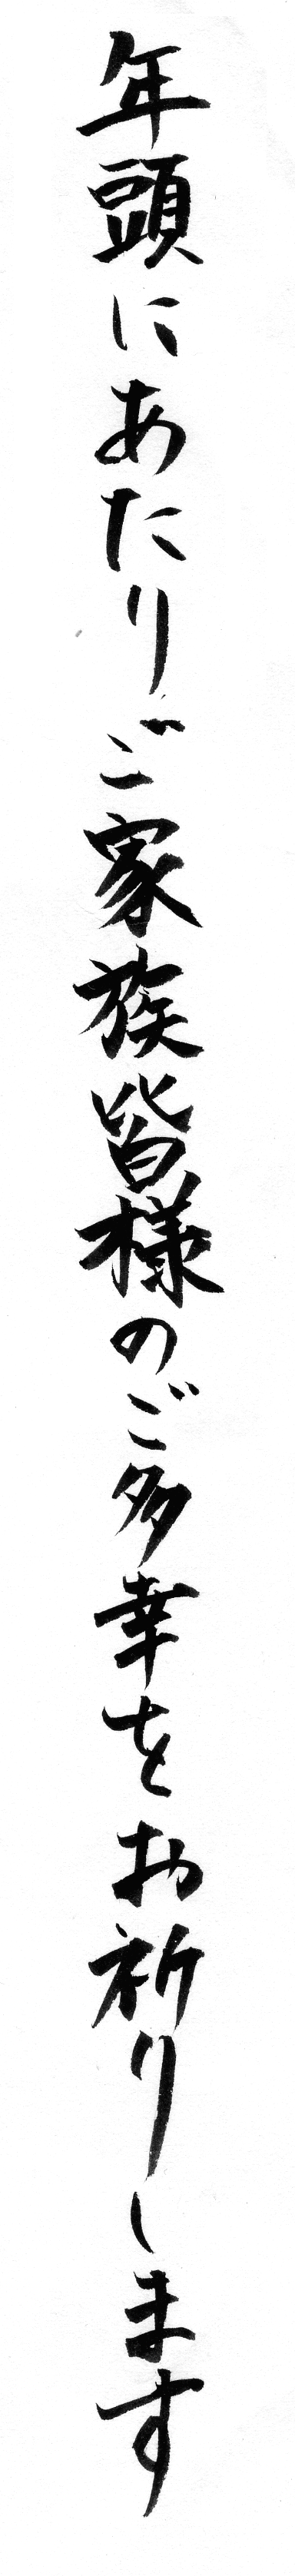 年頭にあたりご家族皆様のご多幸をお祈りします